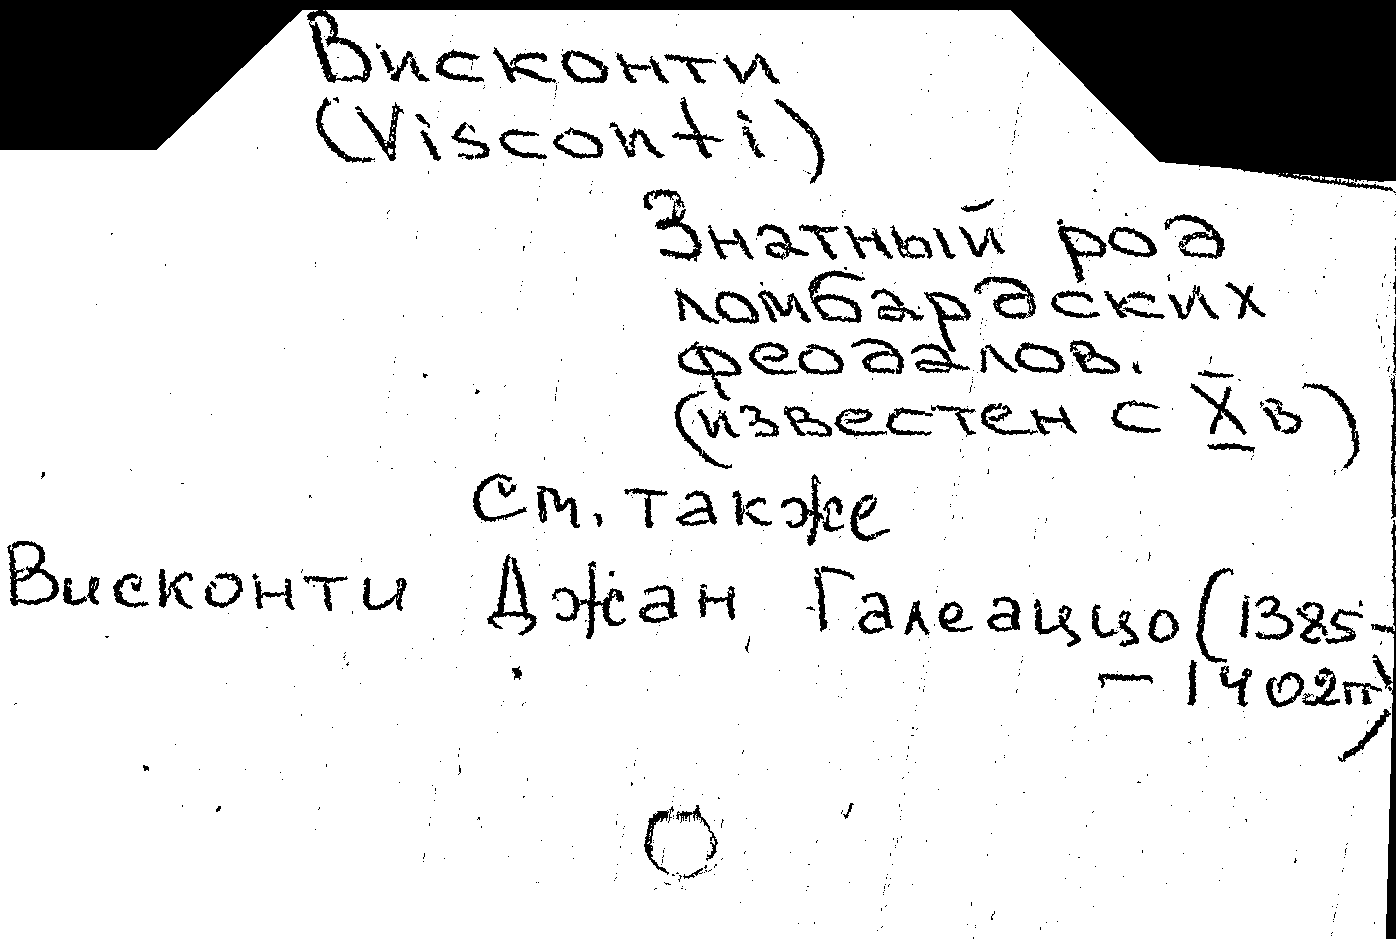 Висконти
(Visconti)
Знатный род
ломбардских
феодалов.
(известен с X в)
См. также
Висконти Джан Галеаццо (1385-
- 1402гг)